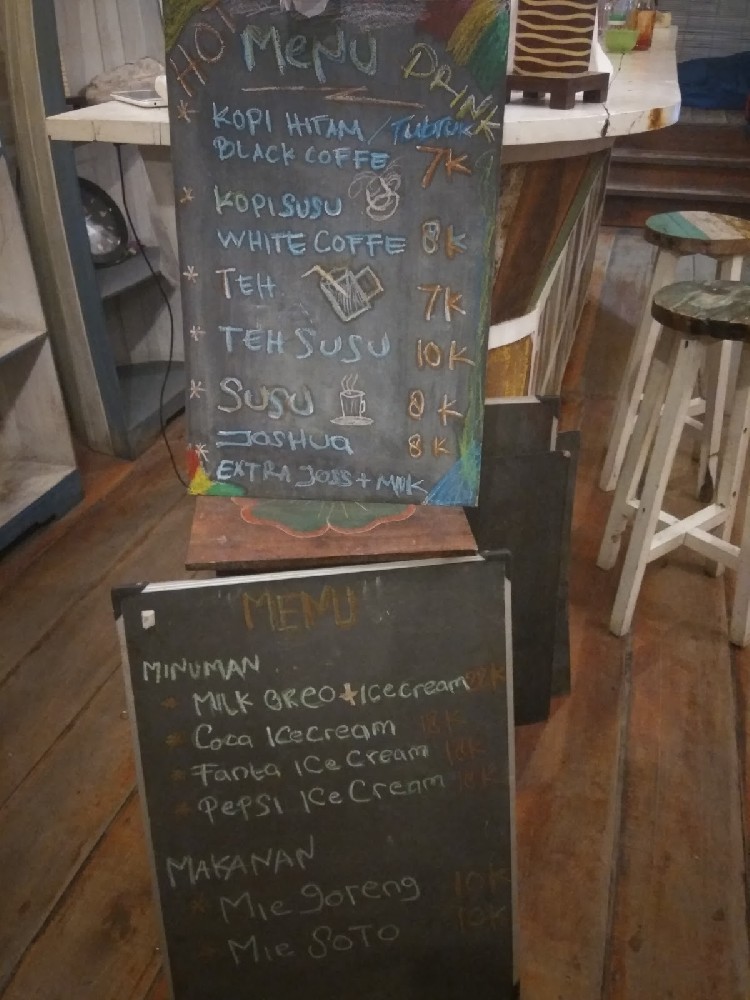 HOT MENU DRINK
* KOPI HITAM / TUBTUK
BLACK COFFE 7K
* KOPI SUSU
WHITE COFFE 8K
* TEH 7K
* TEH SUSU 10K
* SUSU 8K
JOSHUA 8K
* EXTRA JOSS + MILK
"MENU"
MINUMAN
MILK OREO + Icecream
Coca ICecream
Fanta ICe Cream
PePSI ICe Cream
MAKANAN
Mie goreng 10K
Mie SoTo